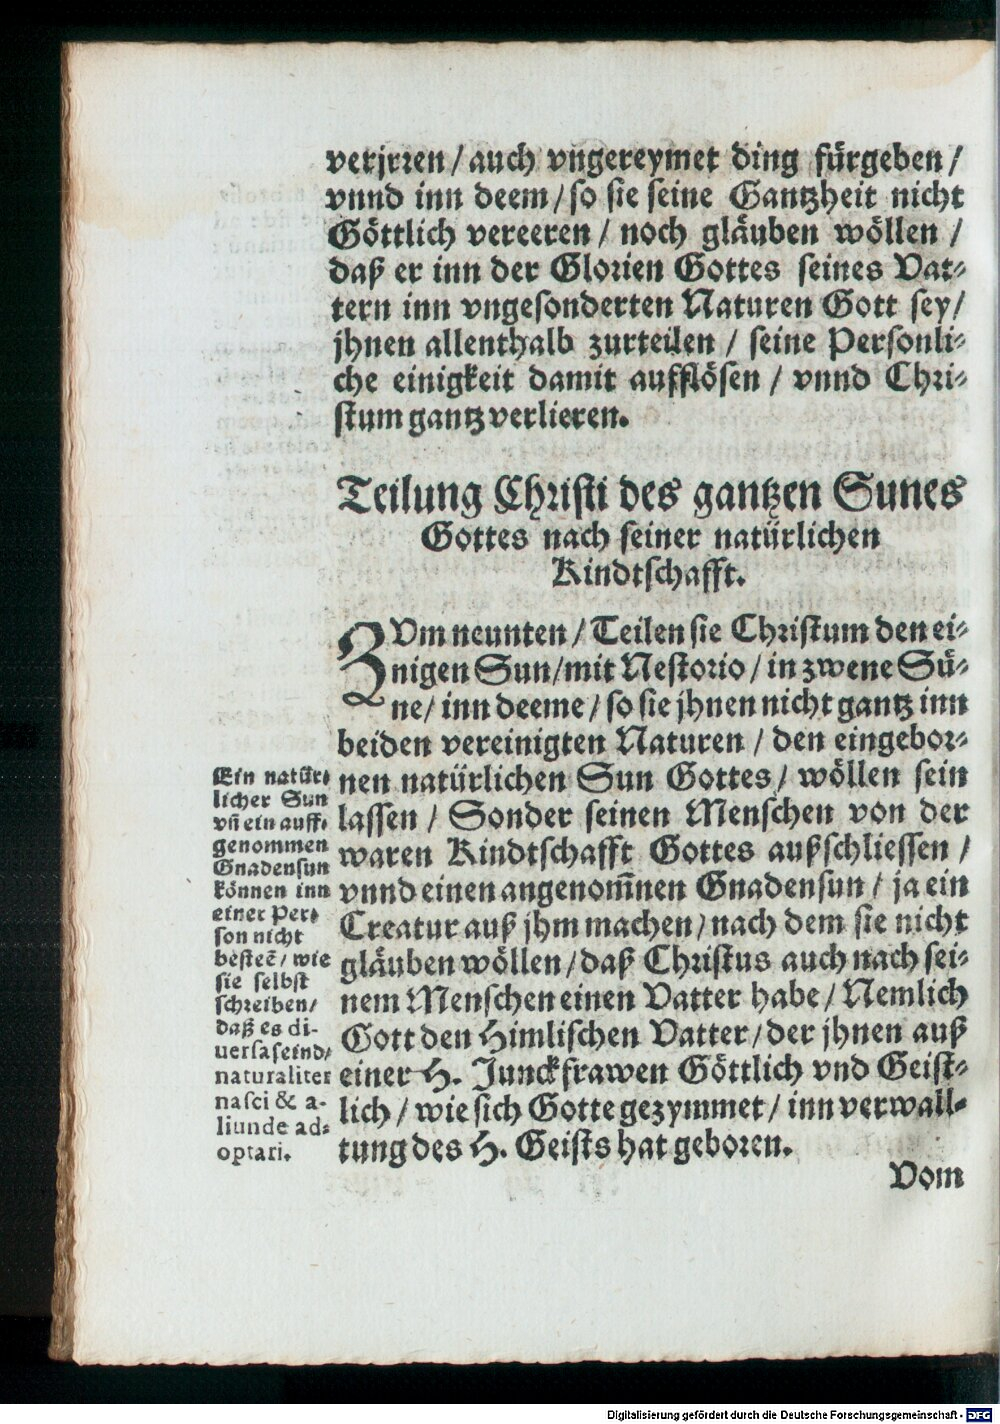 verjrren / auch vngereymet ding fürgeben /
vnnd inn deem / so sie seine Gantzheit nicht
Göttlich vereeren / noch gläuben wöllen /
daß er inn der Glorien Gottes seines Vat-
tern inn vngesonderten Naturen Gott sey /
jhnen allenthalb zurteilen / seine Personli-
che einigkeit damit aufflösen / vnnd Chri-
stum gantz verlieren.
Teilung Christi des gantzen Sunes
Gottes nach seiner natürlichen
Kindtschafft.
ZVm neunten / Teilen sie Christum den ei-
nigen Sun / mit Nestorio / in zwene Sü-
ne / inn deeme / so sie jhnen nicht gantz inn
beiden vereinigten Naturen / den eingebor-
nen natürlichen Sun Gottes / wöllen sein
lassen / Sonder seinen Menschen von der
waren Kindtschafft Gottes außschliessen /
vnnd einen angenom̃nen Gnadensun / ja ein
Creatur auß jhm machen / nach dem sie nicht
gläuben wöllen / daß Christus auch nach sei-
nem Menschen einen Vatter habe / Nemlich
Gott den Himlischen Vatter / der jhnen auß
einer H. Junckfrawen Göttlich vnd Geist-
lich / wie sich Gotte gezymmet / inn verwall-
tung des H. Geists hat geboren.
Vom
Ein natür-
licher Sun
vñ ein auff-
genommen
Gnadensun
können inn
einer Per-
son nicht
besteẽ / wie
sie selbst
schreiben /
daß es di-
uersa seind /
naturaliter
nasci & a-
liunde ad-
optari.
Digitalisierung gefördert durch die Deutsche Forschungsgemeinschaft - DFG